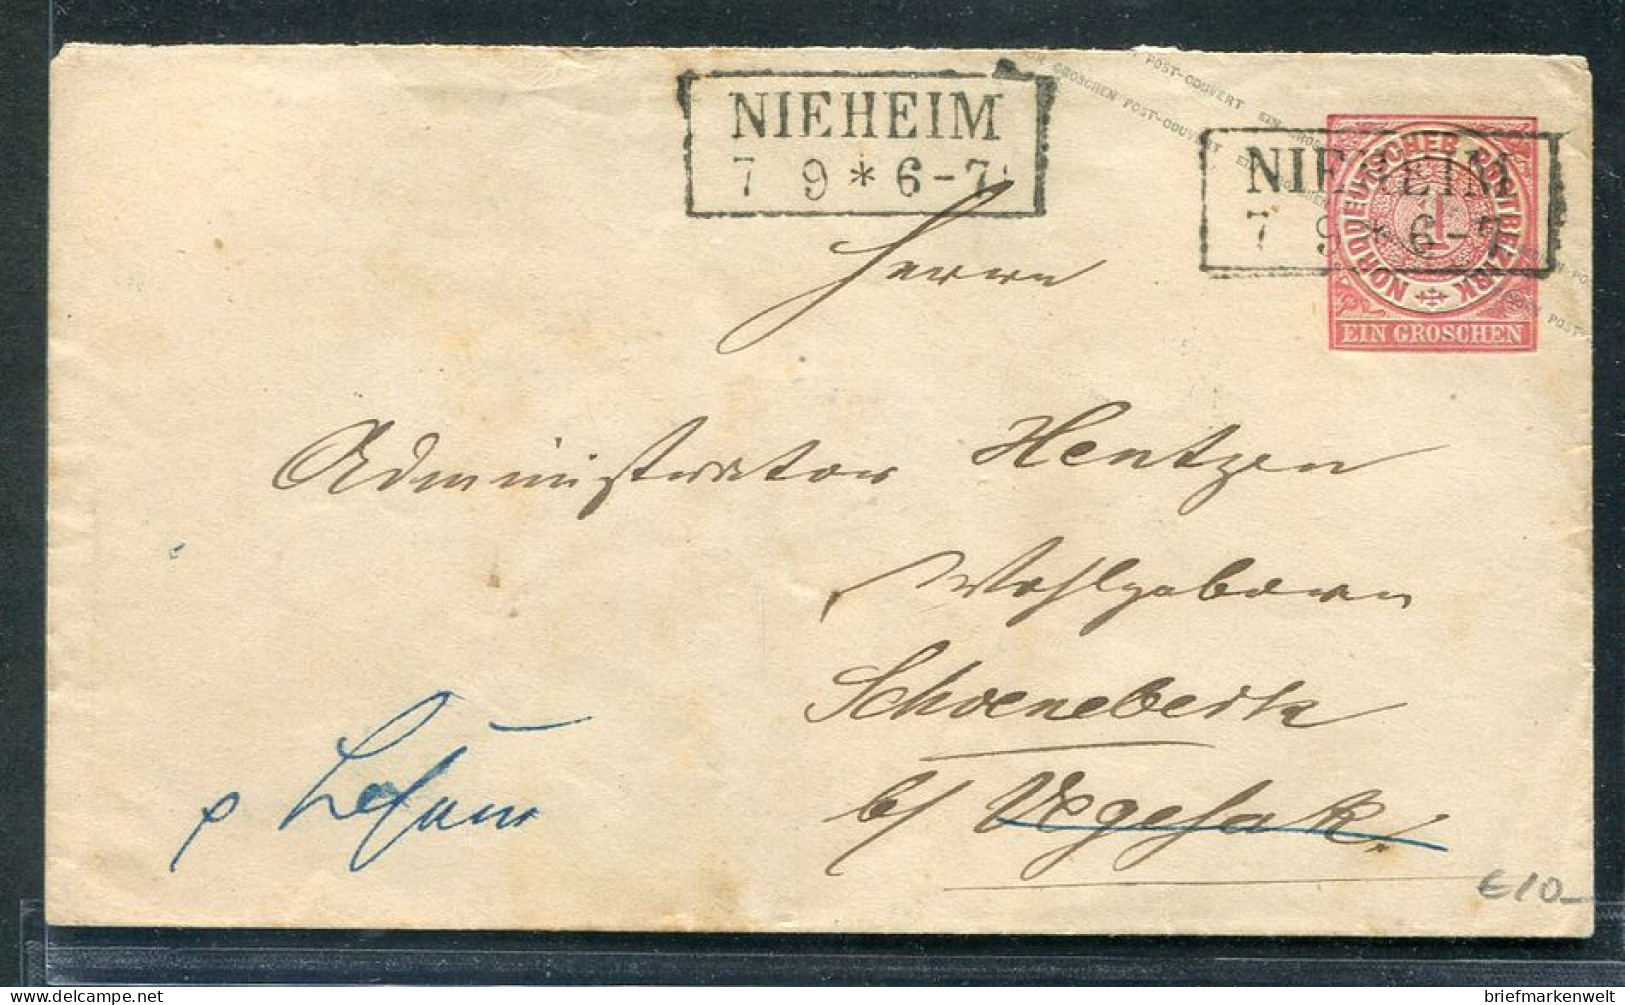 NIEHEIM
7 9 * 6-7
NIEHEIM
7 9 * 6-7
EIN GROSCHEN POST-COUVERT
POST-COUVERT EIN GROSCHEN
NORDDEUTSCHER POSTBEZIRK
1
EIN GROSCHEN
Herrn
Administrator Hentzen
Wohlgeborn
Schoenebeck
b/ Vegesak.
p Lesum
€10-
briefmarkenwelt